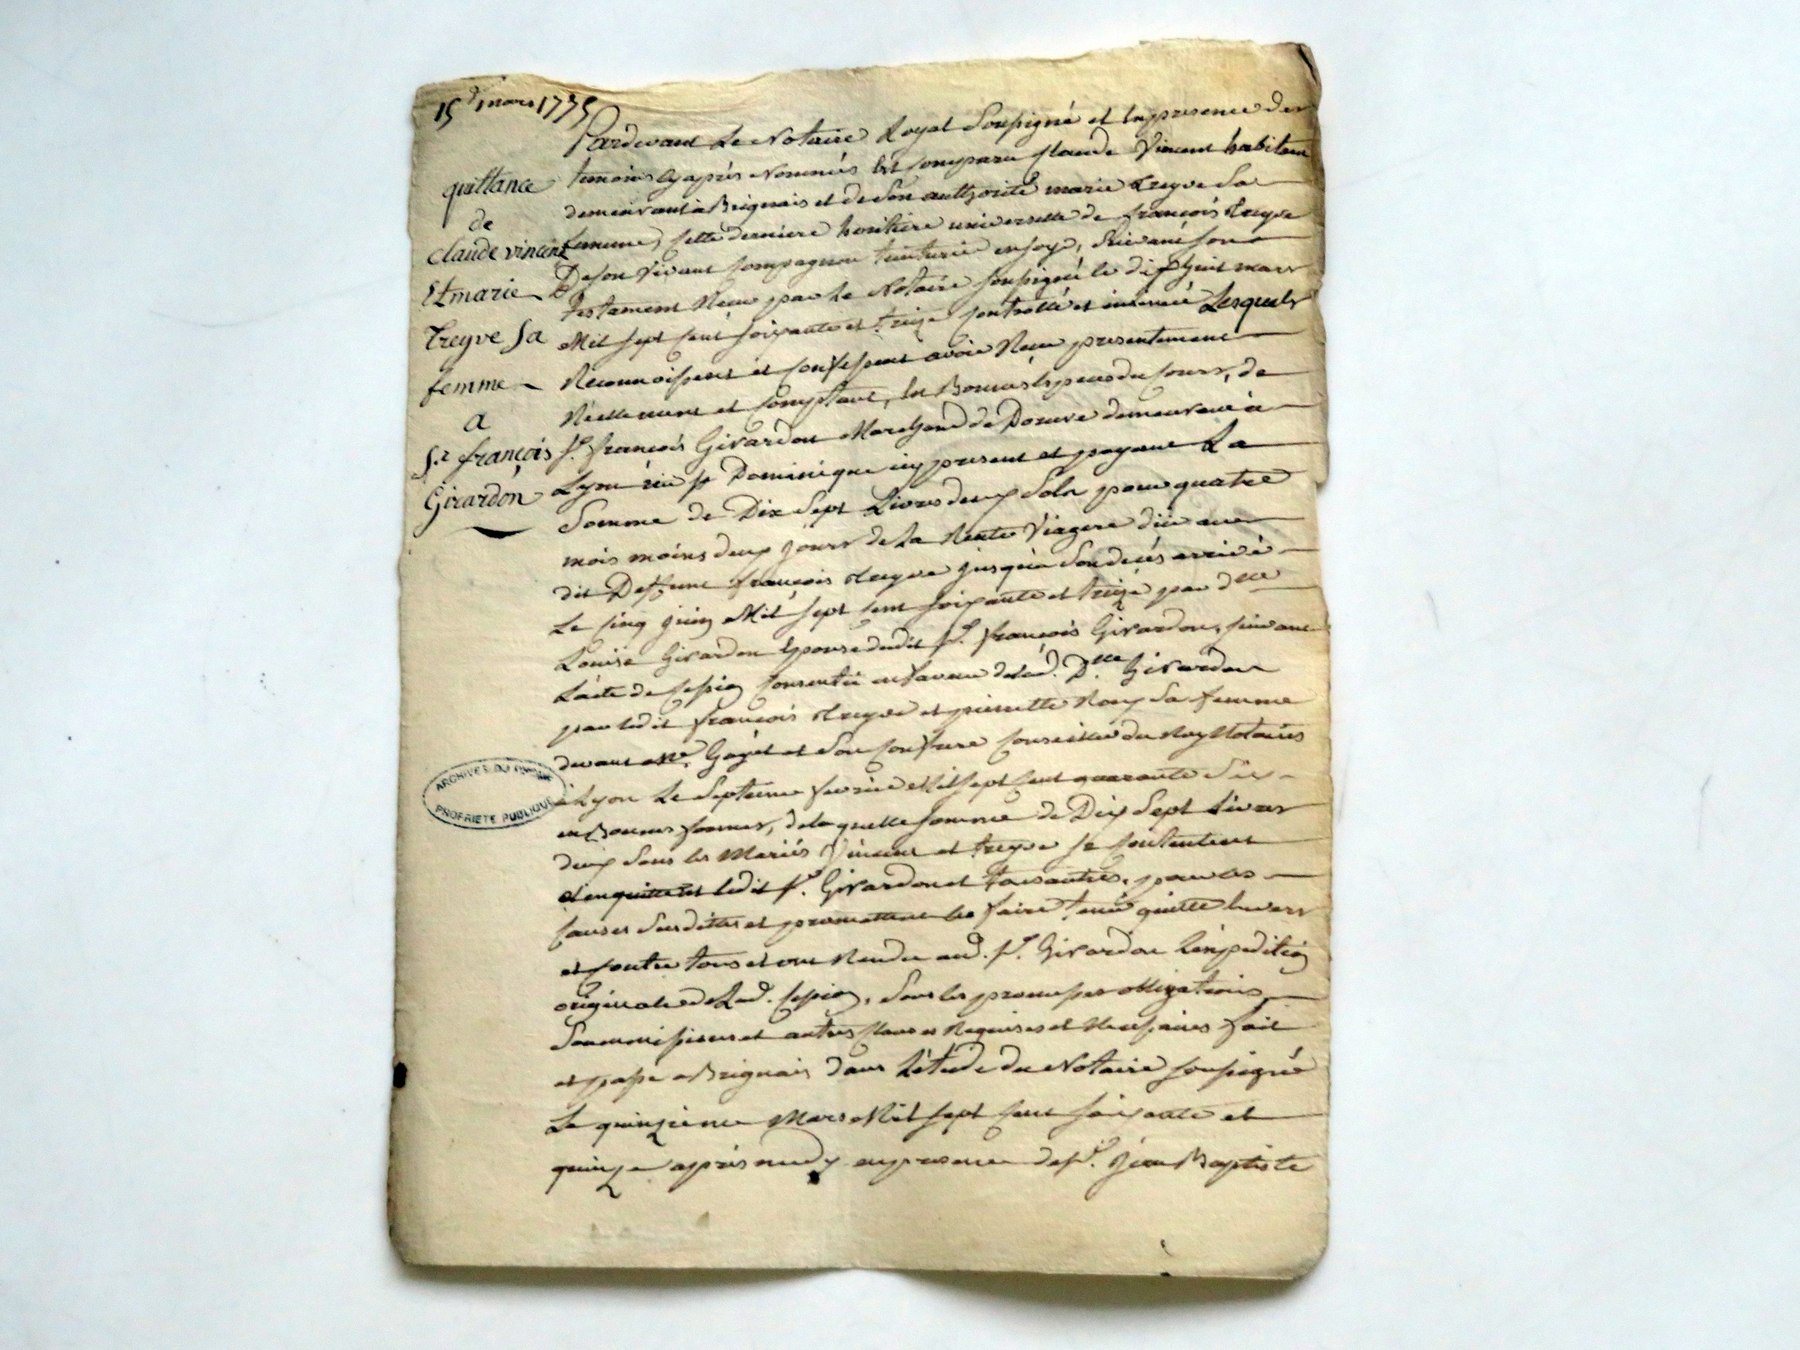 15 mars 1775
quittance
de
claude vincent
Et marie
treyve sa
femme
a
Sr. françois
Girardon
Pardevant Le Notaire Royal Soussigné et En presence des
temoins Cy après Nommés Est Comparu Claude Vincent habitant
demeurant à Brignais et de Son authorité marie treyve Sa
femme, Cette derniere heritiere universelle de françois treyve
De son Vivant Compagnon teinturie en soye, Suivant son
testament Reçu par Le Notaire soussigné le dix huit mars
Mil sept cent soixante et treize Controllé et insinué Lesquels
Reconnoissent et confessent avoir Reçu presentement
Réellement et Comptant, En Bonnes Especes du Cours, de
Sr. françois Girardon Marchand de Dorure demeurant à
Lyon rüe St Dominique icy present et payant La
Somme de Dix Sept Livres deux Sols pour quatre
mois moins deux jours de La Rente Viagere düe au
dit Deffunt françois treyve jusqu'à Son decés arrivé
Le Cinq juin Mil Sept Cent soixante et treize par Dlle
Louise Girardon Epouse dudit Sr. françois Girardon, suivant
L'acte de Cession Consentie en faveur de lad. Dlle Girardon
par ledit françois treyve et pierrette Roux Sa femme
devant Me. Gayet et Son Confrere Conseillers du Roy Notaires
à Lyon Le Septieme fevrier Mil sept Cent quarante Six
en Bonnes formes, de laquelle somme de Dix Sept Livres
deux Sous les Mariés Vincent et treyve se Contentent
et en quittent ledit Sr. Girardon et tous autres, pour les
Causes Susdittes et promettent les faire tenir quitte Envers
et Contre tous et ont Rendu aud. Sr. Girardon L'expedition
originale de Lad. Cession, Sous les promesses obligations
Soumissions et autres Clauses Requises et Necessaires fait
et passé a Brignais dans L'étude du Notaire soussigné
Le quinzieme Mars Mil sept Cent soixante et
quinze après midy en presence de Sr. Jean Baptiste
ARCHIVES DU RHONE
PROPRIETE PUBLIQUE